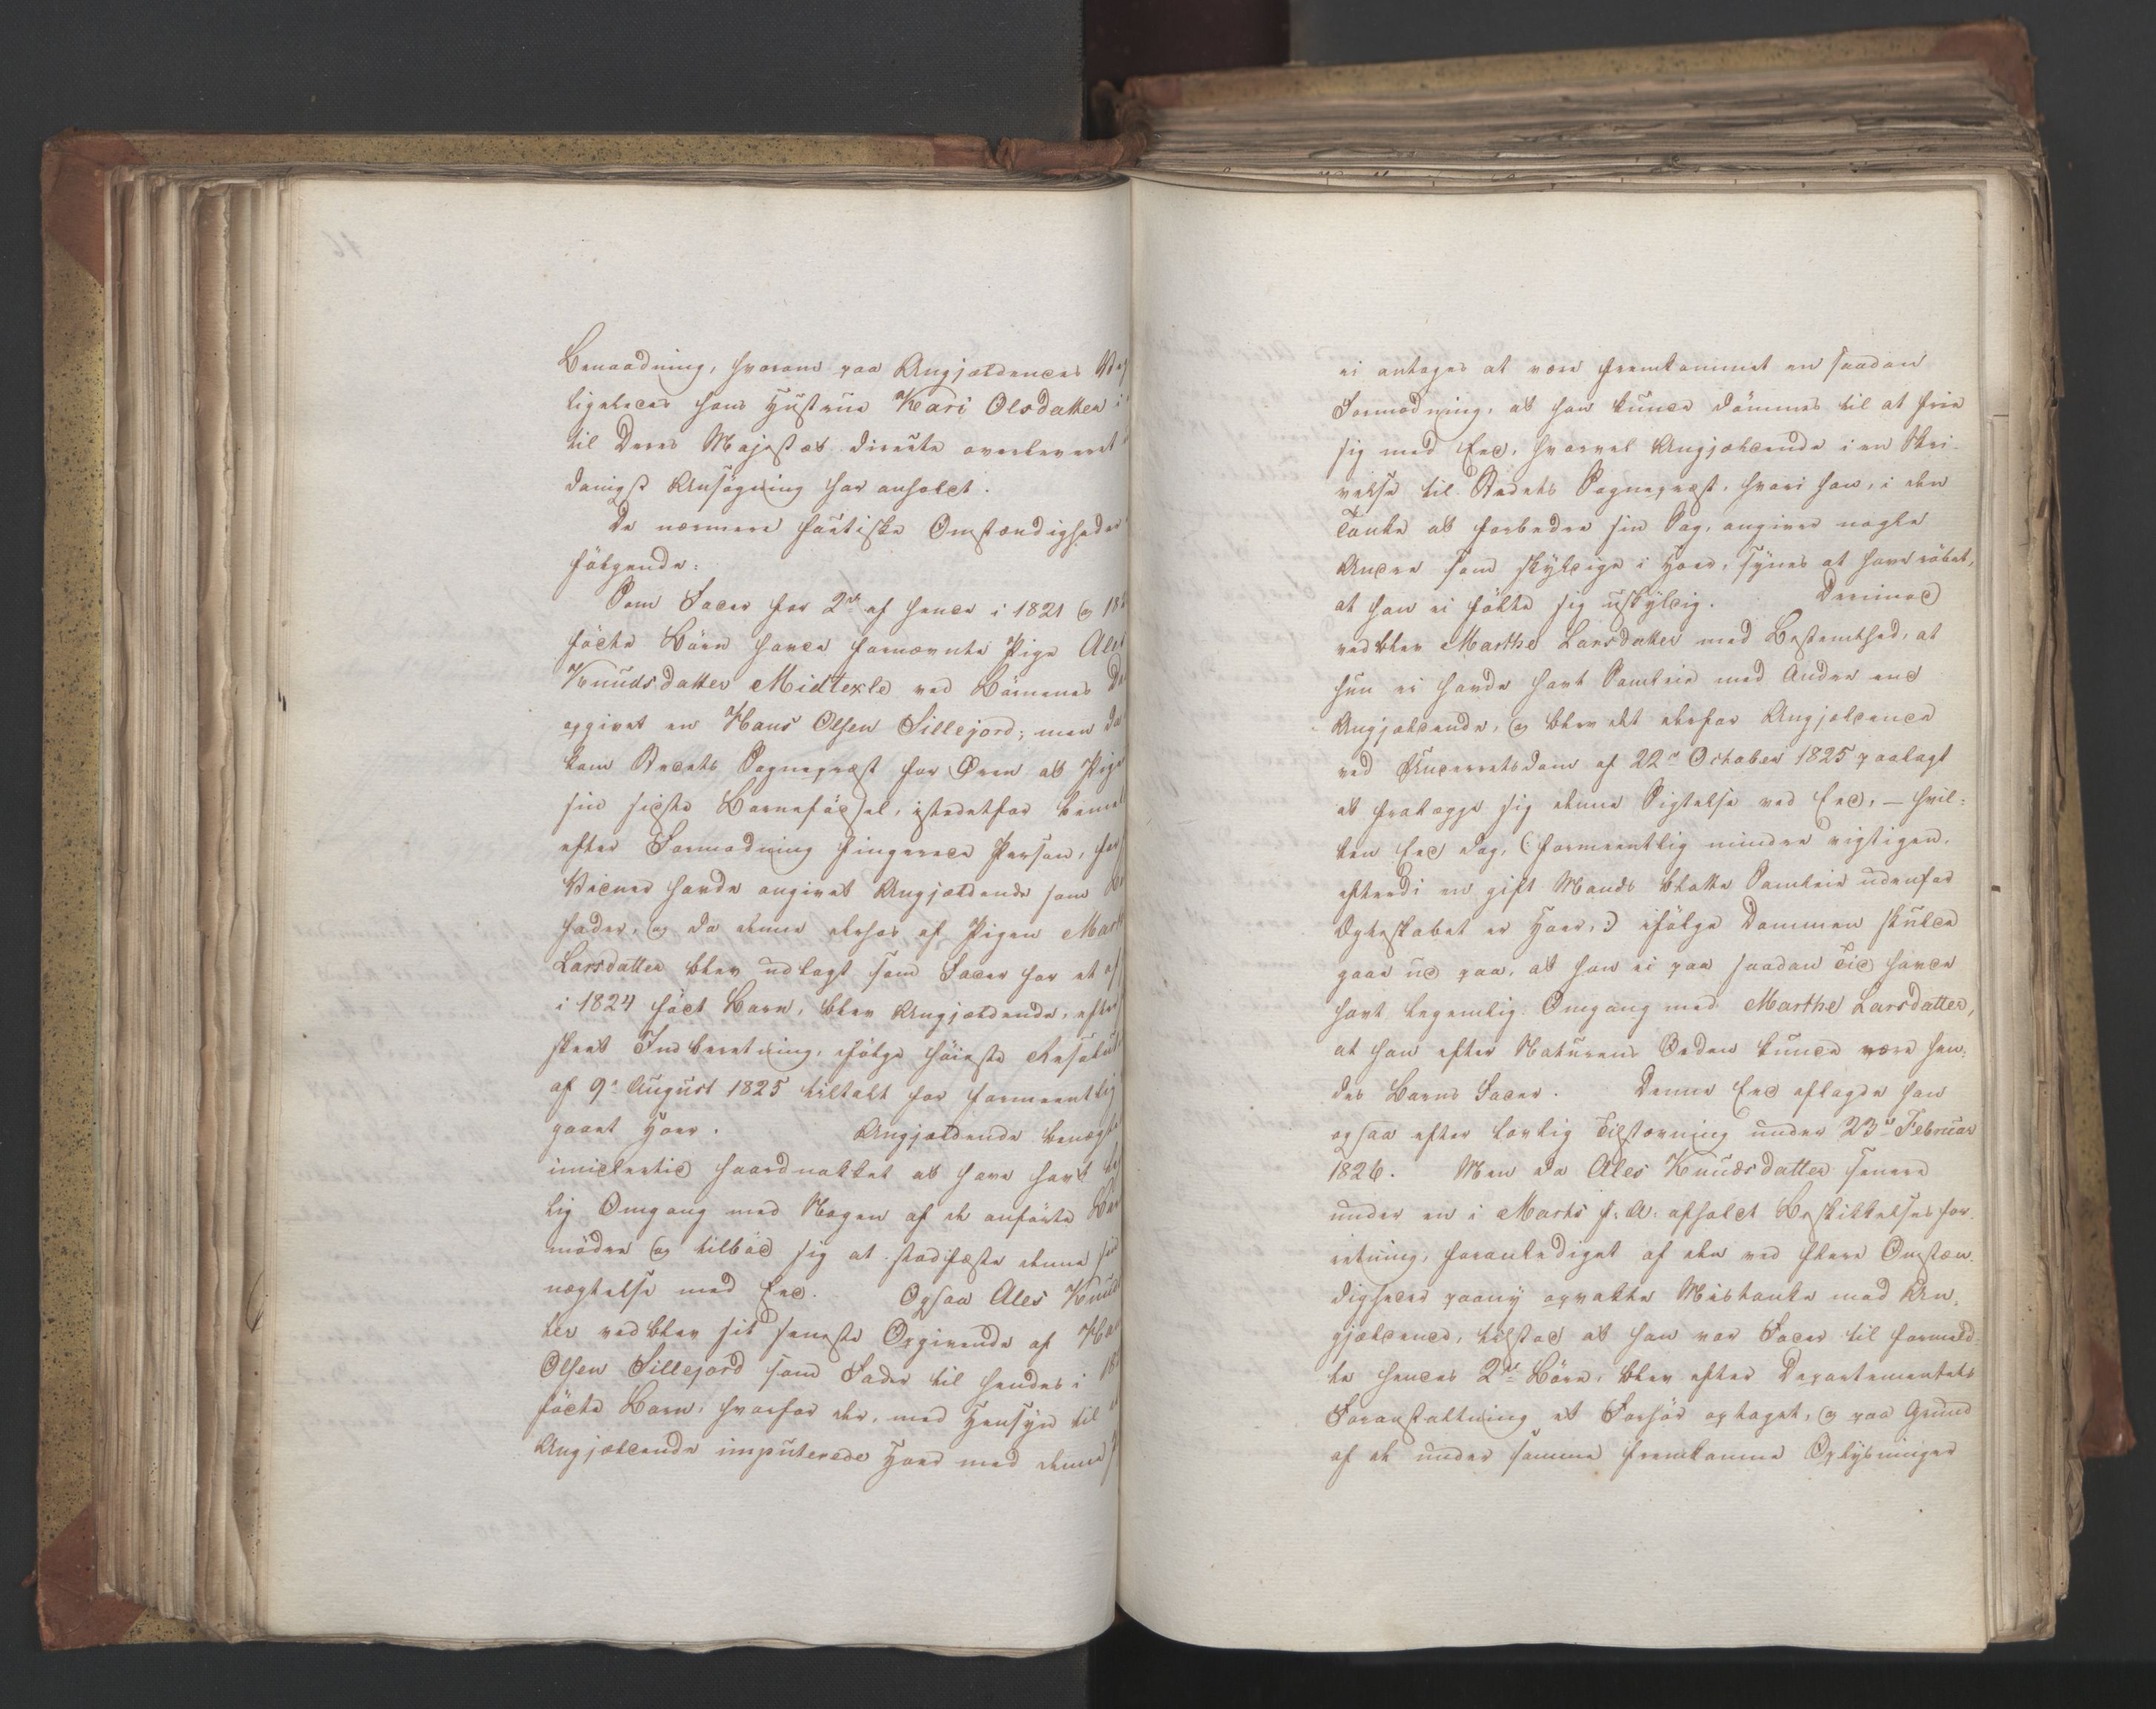 Benaadning, hvorom paa Angjældendes
ligeledes hans Hustrue Kari Olsdatter i
til Deres Majestæt directe overleveret
danigst Ansøgning har anholdt.
De nærmere factiske Omstændigheder
følgende:
Som Fader for 2de af hende i 1821 og 18
fødte Börn havde fornævnte Pige Ales
Knudsdatter Midtexle ved Börnenes
opgivet en Hans Olsen Sillejord; men da
kom Stedets Sognepræst for Øren at Pigen
sin sidste Barnefödsel, istedetfor
efter Formodning fingerede Person, for
Vidner havde angivet Angjældende som
fader, og da denne derhos af Pigen Marthe
Larsdatter blev udlagt som Fader for et af
i 1824 född Barn, blev Angjældende, efter
skeet Indberetning, ifølge höieste Resoluti
af 9de August 1825 tiltalt for formeentlig
gaaet Hoer. Angjældende benægte
imidlertid haardnakket at have havt
lig Omgang med Nogen af de anförte Bar
mödre og tilböd sig at stadfæste denne sin
nægtelse med Eed. Ogsaa Ales Knuds
ter vedblev sit seneste Opgivende af Hans
Olsen Sillejord som Fader til hendes i 18
födte Barn, hvorfor der, med Hensyn til
Angjældende imputerede Hoer med denne
ei antages at være fremkommet en saadan
Formodning, at han kunde dömmes til at frie
sig med Eed, hvorvel Angjældende i en Skri-
velse til Stedets Sognepræst, hvori han, i den
Tanke at forbedre sin Sag, angiver nogle
Andre som skyldige i Hoer, synes at have röbet,
at han ei følte sig uskyldig. Derimod
vedblev Marthe Larsdatter med Bestemthed, at
hun ei havde havt Samleie med Andre end
Angjældende, og blev det derfor Angjældende
ved Underretsdom af 22de October 1825 paalagt
at fralægge sig denne Sigtelse ved Eed, – hvil-
ken Eed dog, (: formeentlig mindre rigtigen,
efterdi en gift Mands blotte Samleie udenfor
Ægteskabet er Hoer, :) ifølge Dommen skulde
gaae ud paa, at han ei paa saadan Tid havde
havt legemlig Omgang med Marthe Larsdatter,
at han efter Naturens Orden kunde være hen-
des Barns Fader. Denne Eed aflagde han
ogsaa efter lovlig Tilstævning under 23de Februar
1826. Men da Ales Knudsdatter senere
under en i Marts s: A: afholdt Beskikkelsesfor-
retning, foranlediget af den ved flere Omstæn-
digheder paany opvakte Mistanke mod An-
gjældende, tilstod at han var Fader til formeld-
te hendes 2de Börn, blev efter Departementets
Foranstaltning et Forhör optaget, og paa Grund
af de under samme fremkomne Oplysninger